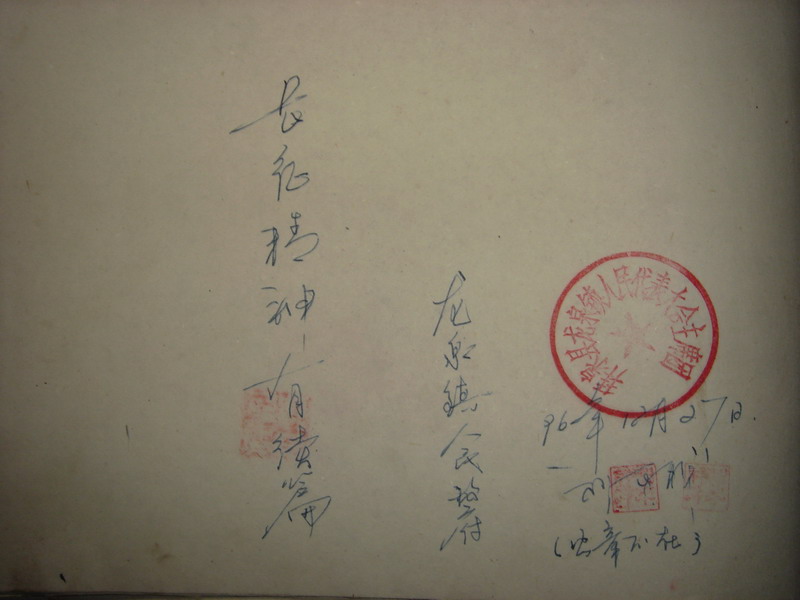 长征精神有续篇
龙泉镇人民政府
县龙泉镇人民代表大会主席团
96年12月27日.
(公章不在)